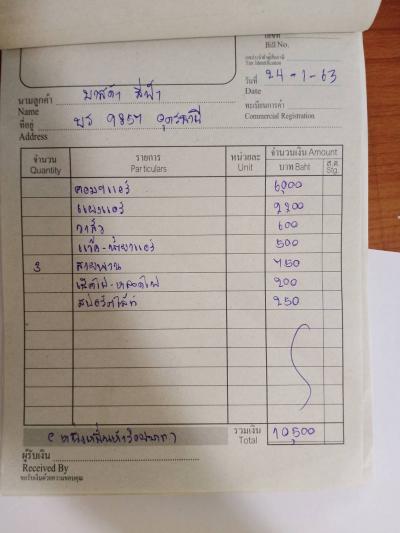 เลขที่
Bill No.
เลขประจำตัวผู้เสียภาษี
Tax Identification
วันที่ 24-1-63
Date
นามลูกค้า มาสด้า สีฟ้า
Name
ทะเบียนการค้า
Commercial Registration
ที่อยู่ บร 9857 อุดรธานี
Address
จำนวน รายการ หน่วยละ จำนวนเงิน Amount
Quantity Particulars Unit บาท Baht ส.ต. Stg.
คอมฯแอร์ 6,000
แผงแอร์ 2200
วาล์ว 600
แว๊ค-น้ำยาแอร์ 500
3 สายพาน 750
200
สปอร์ตไลท์ 250
(หนึ่งหมื่นห้าร้อยบาท) รวมเงิน 10,500
Total
ผู้รับเงิน
Received By
ขอรับเงินด้วยความขอบคุณ